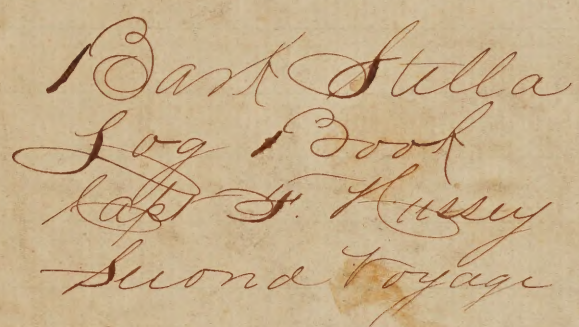 Bark Stella
Log Book
Capt F. Hussey
Second Voyage